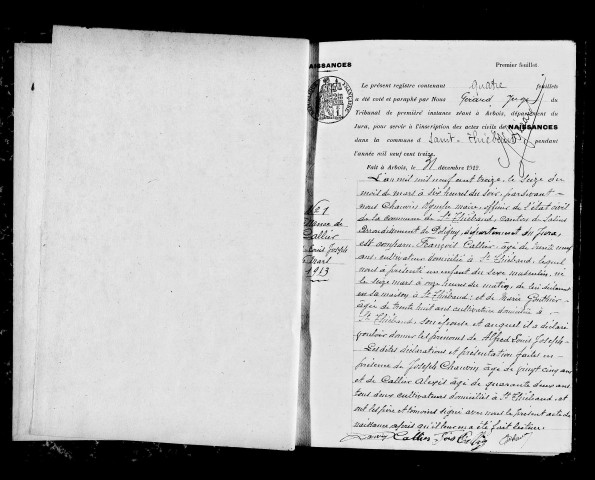 NAISSANCES
Premier feuillet.
Le présent registre contenant quatre feuillets
a été coté et paraphé par Nous Gérard Juge du
Tribunal de première instance séant à Arbois, département du
Jura, pour servir à l'inscription des actes civils de NAISSANCES
dans la commune d Saint-Thiébaud pendant
l'année mil neuf cent treize.
Fait à Arbois, le 31 décembre 1912.
N° 1
Naissance de
Callier
Louis Joseph
Mars
1913
L'an mil neuf cent treize, le seize du
mois de mars à six heures du soir, pardevant
nous Chauvin maire, officier de l'état civil
de la commune de St Thiébaud, canton de Salins
Arrondissement de Poligny, département du Jura,
est comparu François Callier, âgé de trente neuf
ans, cultivateur domicilié à St Thiébaud, lequel
nous a présenté un enfant du sexe masculin, né
le seize mars à onze heures du matin, de lui déclarant
en sa maison à St Thiébaud; et de Marie Gauthier
âgée de trente huit ans cultivatrice domiciliée à
St Thiébaud, son épouse et auquel il a déclaré
vouloir donner les prénoms de Alfred Louis Joseph
Lesdites déclarations et présentation faites en
présence de Joseph Chauvin âgé de vingt cinq ans
et de Callier Alexis âgé de quarante deux ans
tous deux cultivateurs domiciliés à St Thiébaud, et
ont les père et témoins signé avec nous le présent acte de
naissance après qu'il leur en a été fait lecture.
Callier